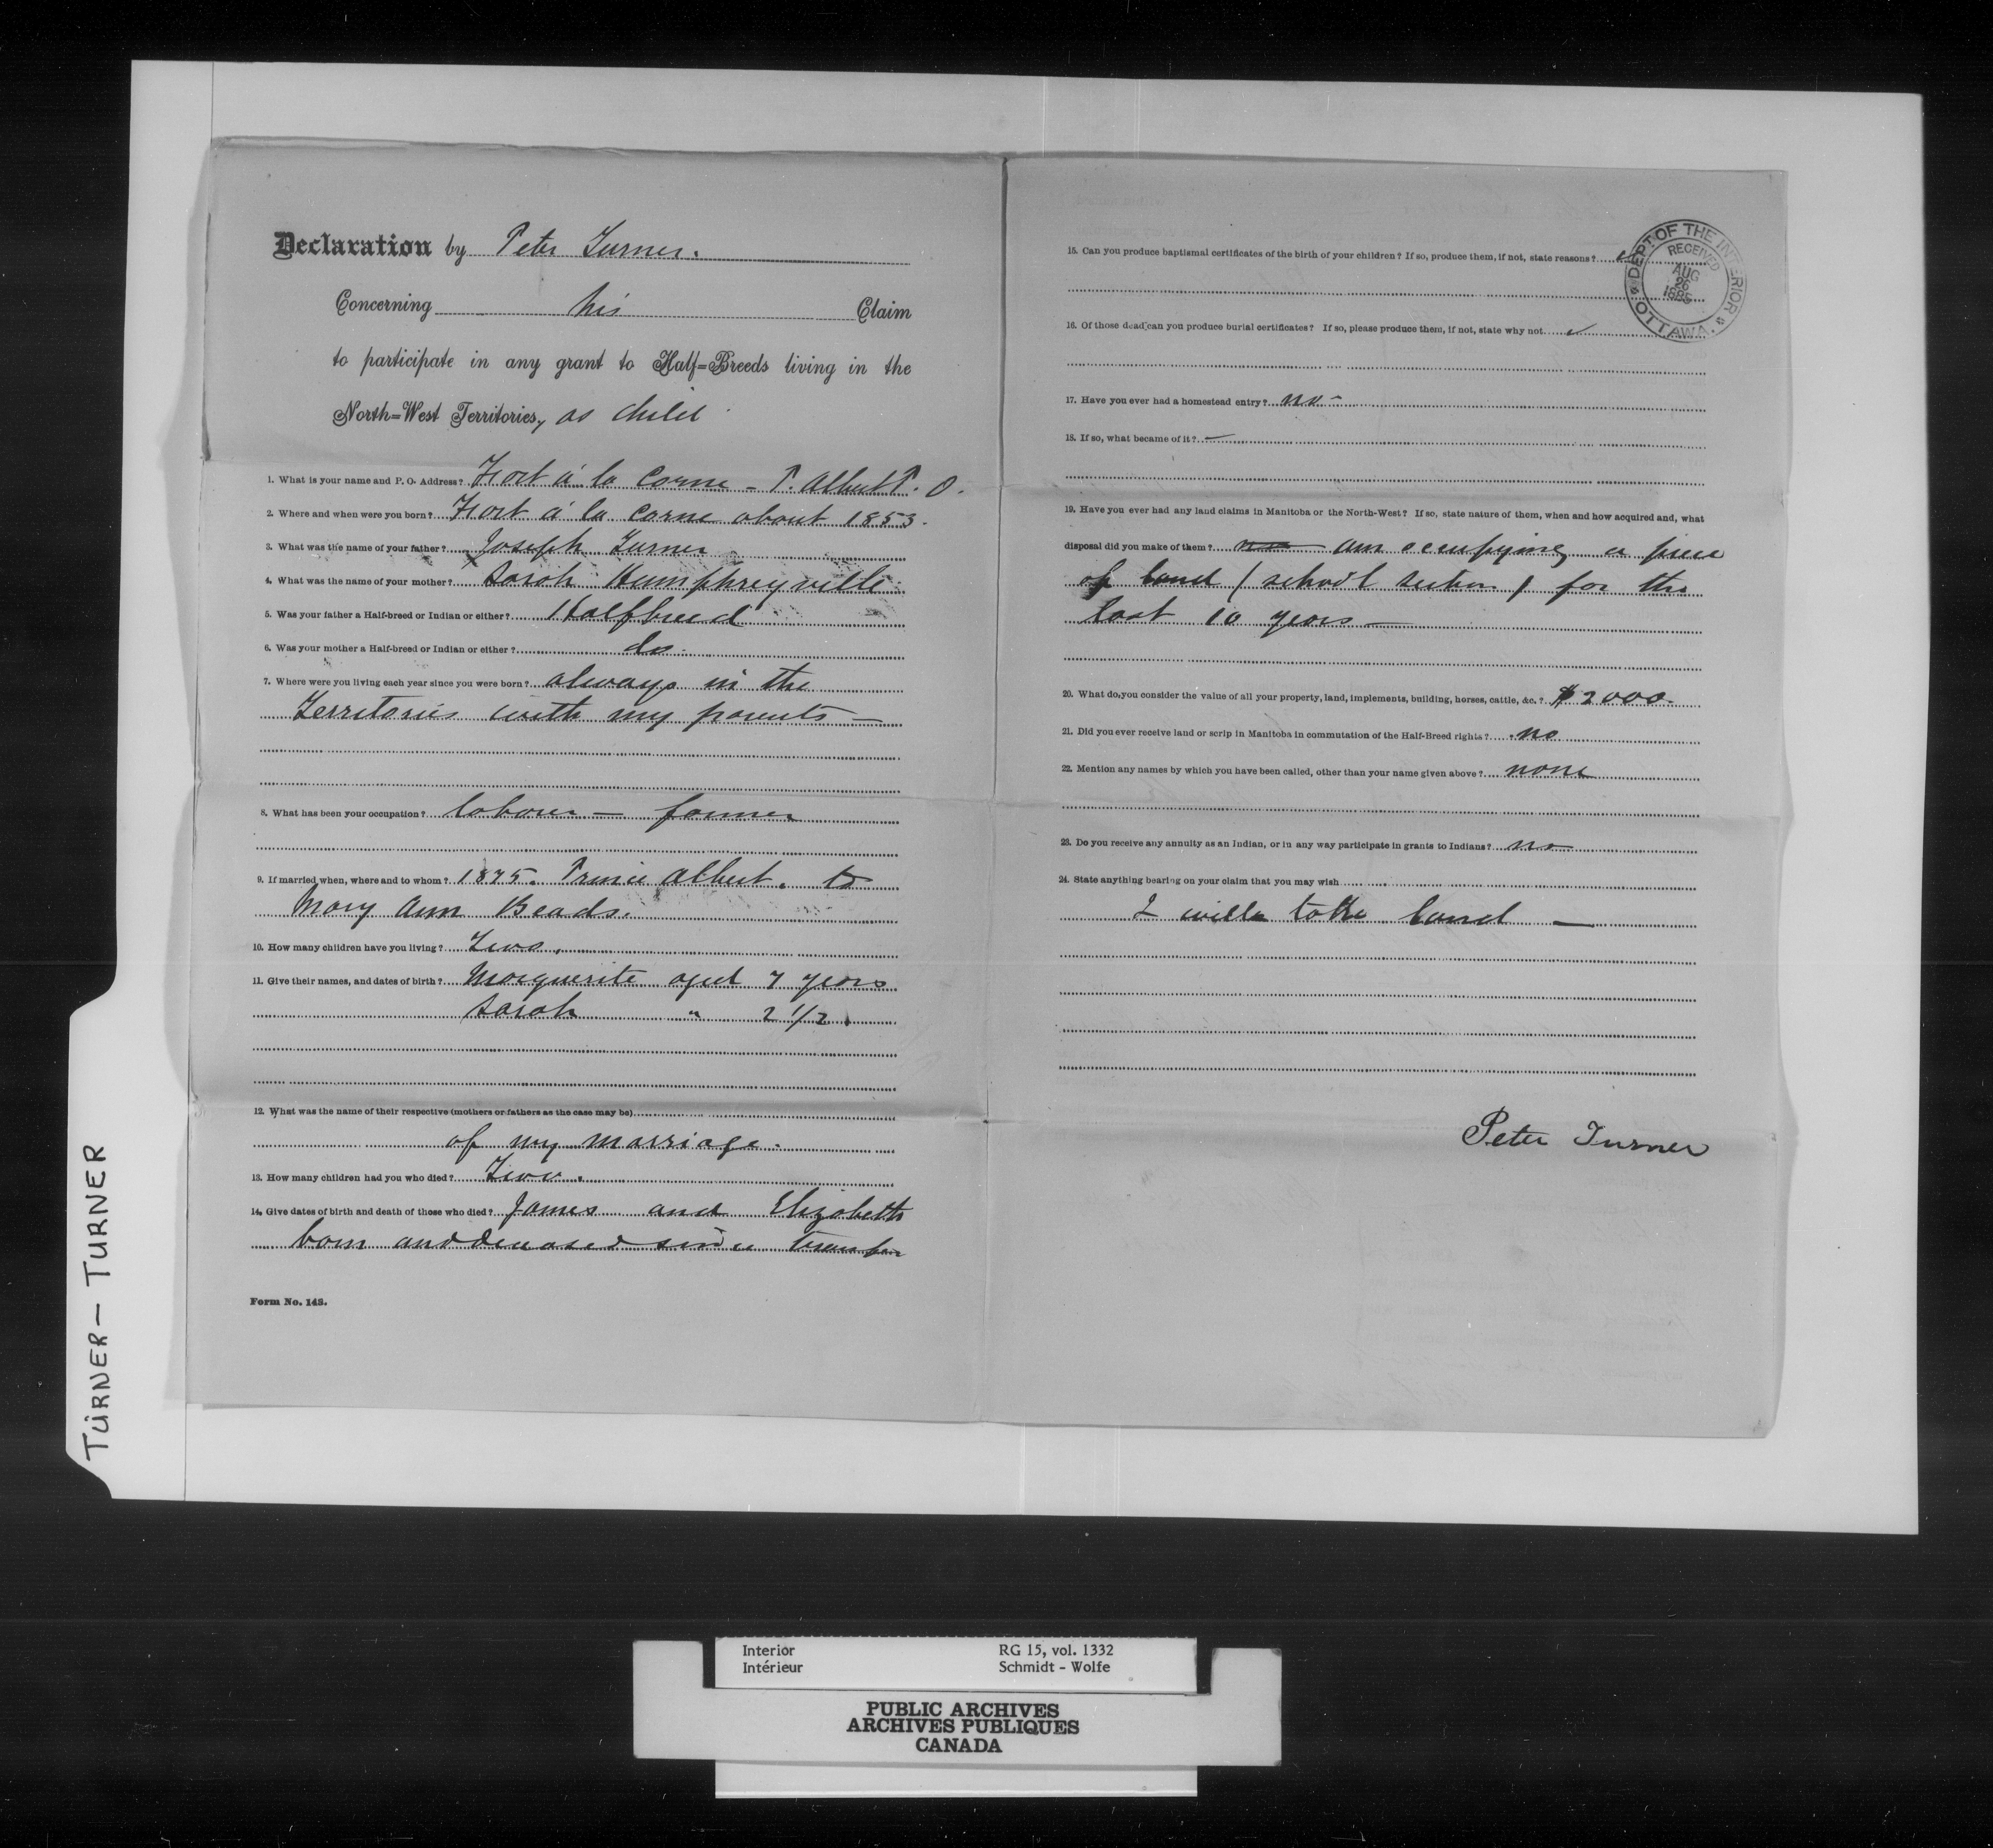 Declaration by Peter Turner.
Concerning his Claim
to participate in any grant to Half=Breeds living in the
North=West Territories, as child
1. What is your name and P. O. Address? Fort á la Corne - P. Albert P. O.
2. Where and when were you born? Fort á la Corne about 1853.
3. What was the name of your father? Joseph Turner
4. What was the name of your mother? Sarah Humphreyville
5. Was your father a Half-breed or Indian or either? Halfbreed
6. Was your mother a Half-breed or Indian or either? do.
7. Where were you living each year since you were born? always in the
Territories with my parents —
8. What has been your occupation? labour — farmer
9. If married, when, where and to whom? 1875. Prince Albert. to
Mary Ann Beads.
10. How many children have you living? Two.
11. Give their names, and dates of birth? Marguerite aged 7 years
Sarah " 2 1/2
12. What was the name of their respective (mothers or fathers as the case may be)
of my marriage.
13. How many children had you who died? Two.
14. Give dates of birth and death of those who died? James and Elizabeth
born and deceased since transfer
Form No. 148.
15. Can you produce baptismal certificates of the birth of your children? If so, produce them, if not, state reasons?
DEPT. OF THE INTERIOR
RECEIVED
AUG
26
1885
OTTAWA.
16. Of those dead can you produce burial certificates? If so, please produce them, if not, state why not ✓
17. Have you ever had a homestead entry? no -
18. If so, what became of it? —
19. Have you ever had any land claims in Manitoba or the North-West? If so, state nature of them, when and how acquired and, what
disposal did you make of them? no am occupying a piece
of land (school section) for the
last 10 years —
20. What do you consider the value of all your property, land, implements, building, horses, cattle, &c.? $2000.
21. Did you ever receive land or scrip in Manitoba in commutation of the Half-Breed rights? no
22. Mention any names by which you have been called, other than your name given above? none
23. Do you receive any annuity as an Indian, or in any way participate in grants to Indians? no
24. State anything bearing on your claim that you may wish
I will take land —
Peter Turner
TURNER — TURNER
Interior RG 15, vol. 1332
Intérieur Schmidt - Wolfe
PUBLIC ARCHIVES
ARCHIVES PUBLIQUES
CANADA